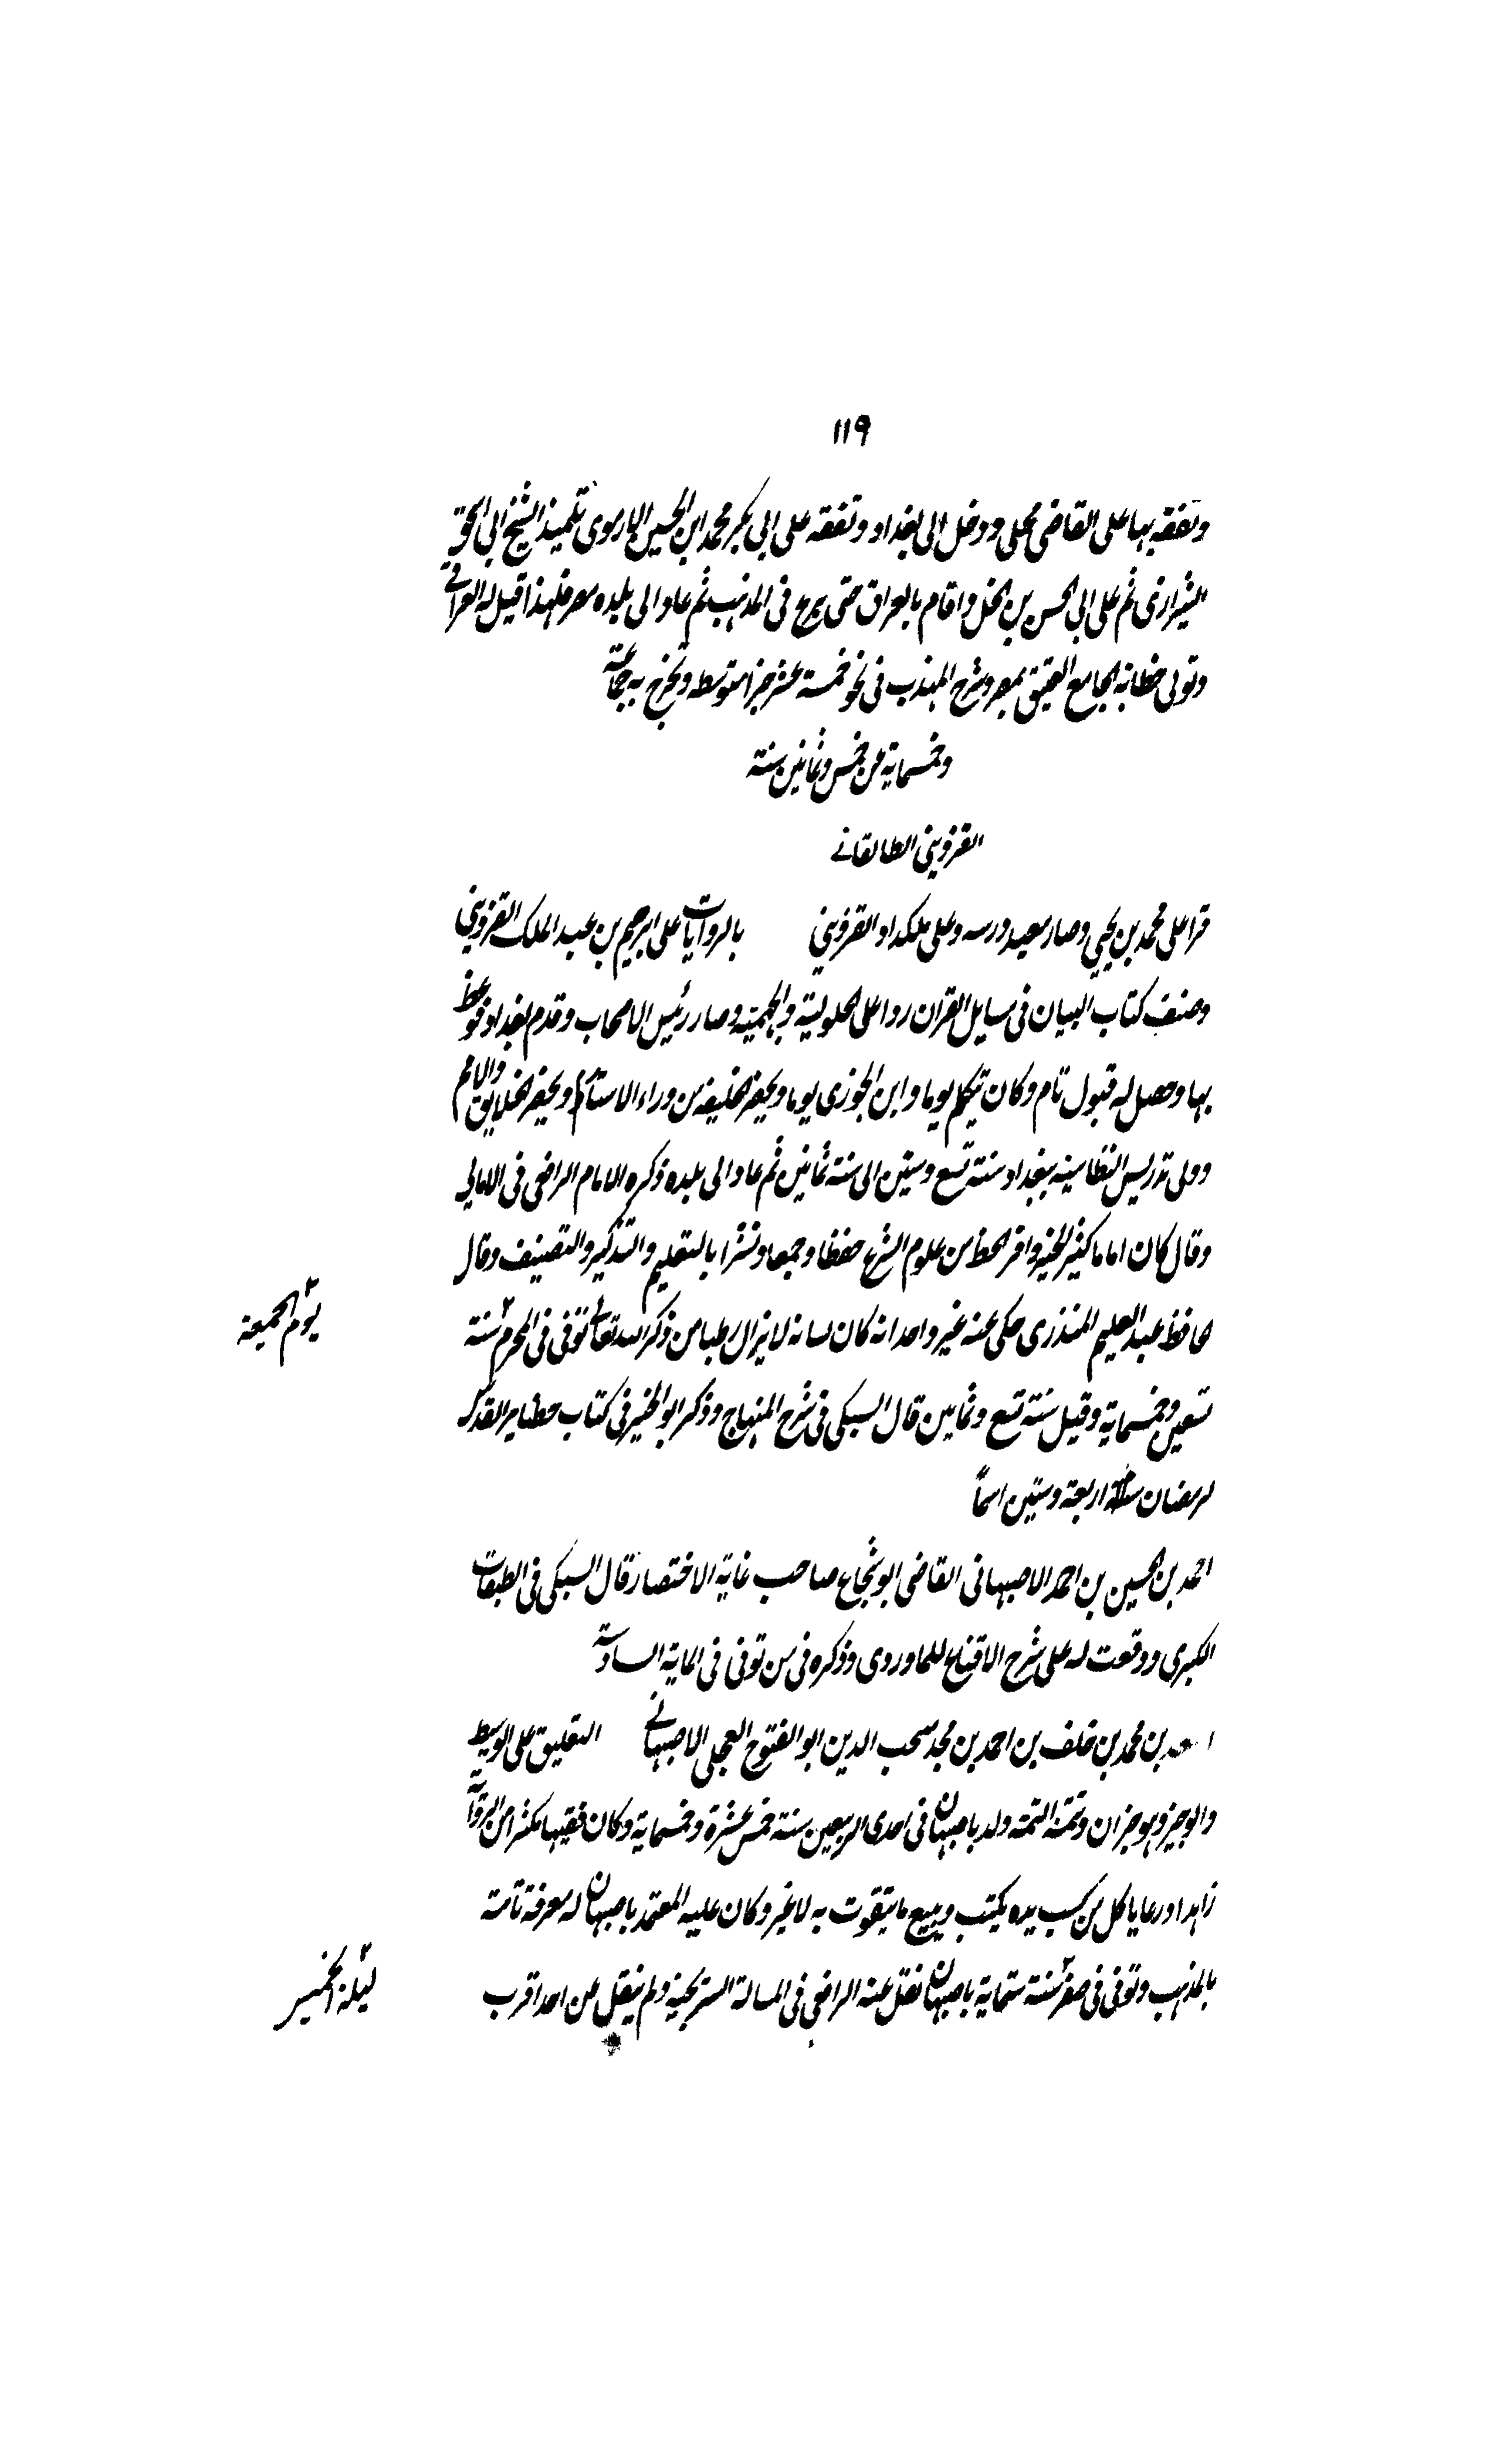 ١١٩
وتفقه بها على القاضى مجلى ودخل الى بغداد وتفقه على ابى بكر محمد ابن الحسين الارموى تلميذ الشيخ ابى اسحق
الشيرازى ثم على ابى الحسن بن الخل واقام بالعراق حتى برع فى المذهب ثم عاد الى بلده مصر فلهذا قيل له العراقى
وتولى خطابة الجامع العتيق بمصر وشرح المهذب فى نحو خمسة عشر جزا متوسطه وتخرج به جماعة
وخمسماية عن خمس وثمانين سنة
القزوينى الطالقانى
قرا على محمد بن يحيى وصار معيد درسه وعلى ملكداد القزوينى بالروايات على ابرهيم بن عبد الملك القزوينى
وصنف كتاب البيان فى مسايل القران ردا على الحلولية والجهمية وصار رئيس الاصحاب وقدم بغداد فوعظ
بها وحصل له قبول تام وكان يتكلم يوما وابن الجوزى يوما ويحضر الخليفة من وراء الاستار ويحضر الخلايق والامم
وولى تدريس النظامية ببغداد سنة تسع وستين الى سنة ثمانين ثم عاد الى بلده ذكره الامام الرافعى فى الامالى
وقال كان اماما كثير الخير وافر الحظ من علوم الشرع حفظا وجمعا ونشرا بالتعليم والتذكير والتصنيف وقال
حافظ عبد العليم المنذرى حكى عنه غير واحد انه كان لسانه لا يزال رطبا من ذكر الله تعالى توفى فى المحرم سنة
يوم الجمعة
تسعين وخمسماية وقيل سنة تسع وثمانين قال السبكى فى شرح المنهاج وذكر ابو الخير فى كتاب حظاير القدس
لرمضان اربعة وستين اسما
احمد بن الحسين بن احمد الاصبهانى القاضى ابو شجاع صاحب غاية الاختصار قال السبكى فى الطبقات
الكبرى ووقعت له على شرح الاقناع للماوردى وذكره فى من توفى فى الماية السادسة
اسعد بن محمد بن خلف بن احمد بن محمد منتخب الدين ابو الفتوح العجلى الاصبهانى التعليق على الوسيط
والوجيز وهو جزان وتتمة التتمه ولد باصبهان فى احدى الربيعين سنة خمس عشرة وخمسماية وكان فقيها مكثرا من الرواية
زاهدا ورعا ياكل من كسب يده يكتب ويبيع ما يتقوت به لا غير وكان عليه المعتمد باصبهان له معرفة تامة
بالمذهب وتوفى فى صفر سنة ستماية باصبهان نقل عنه الرافعى فى المسالة السريجية ولم ينقل عن احد اقرب
ليلة الخميس